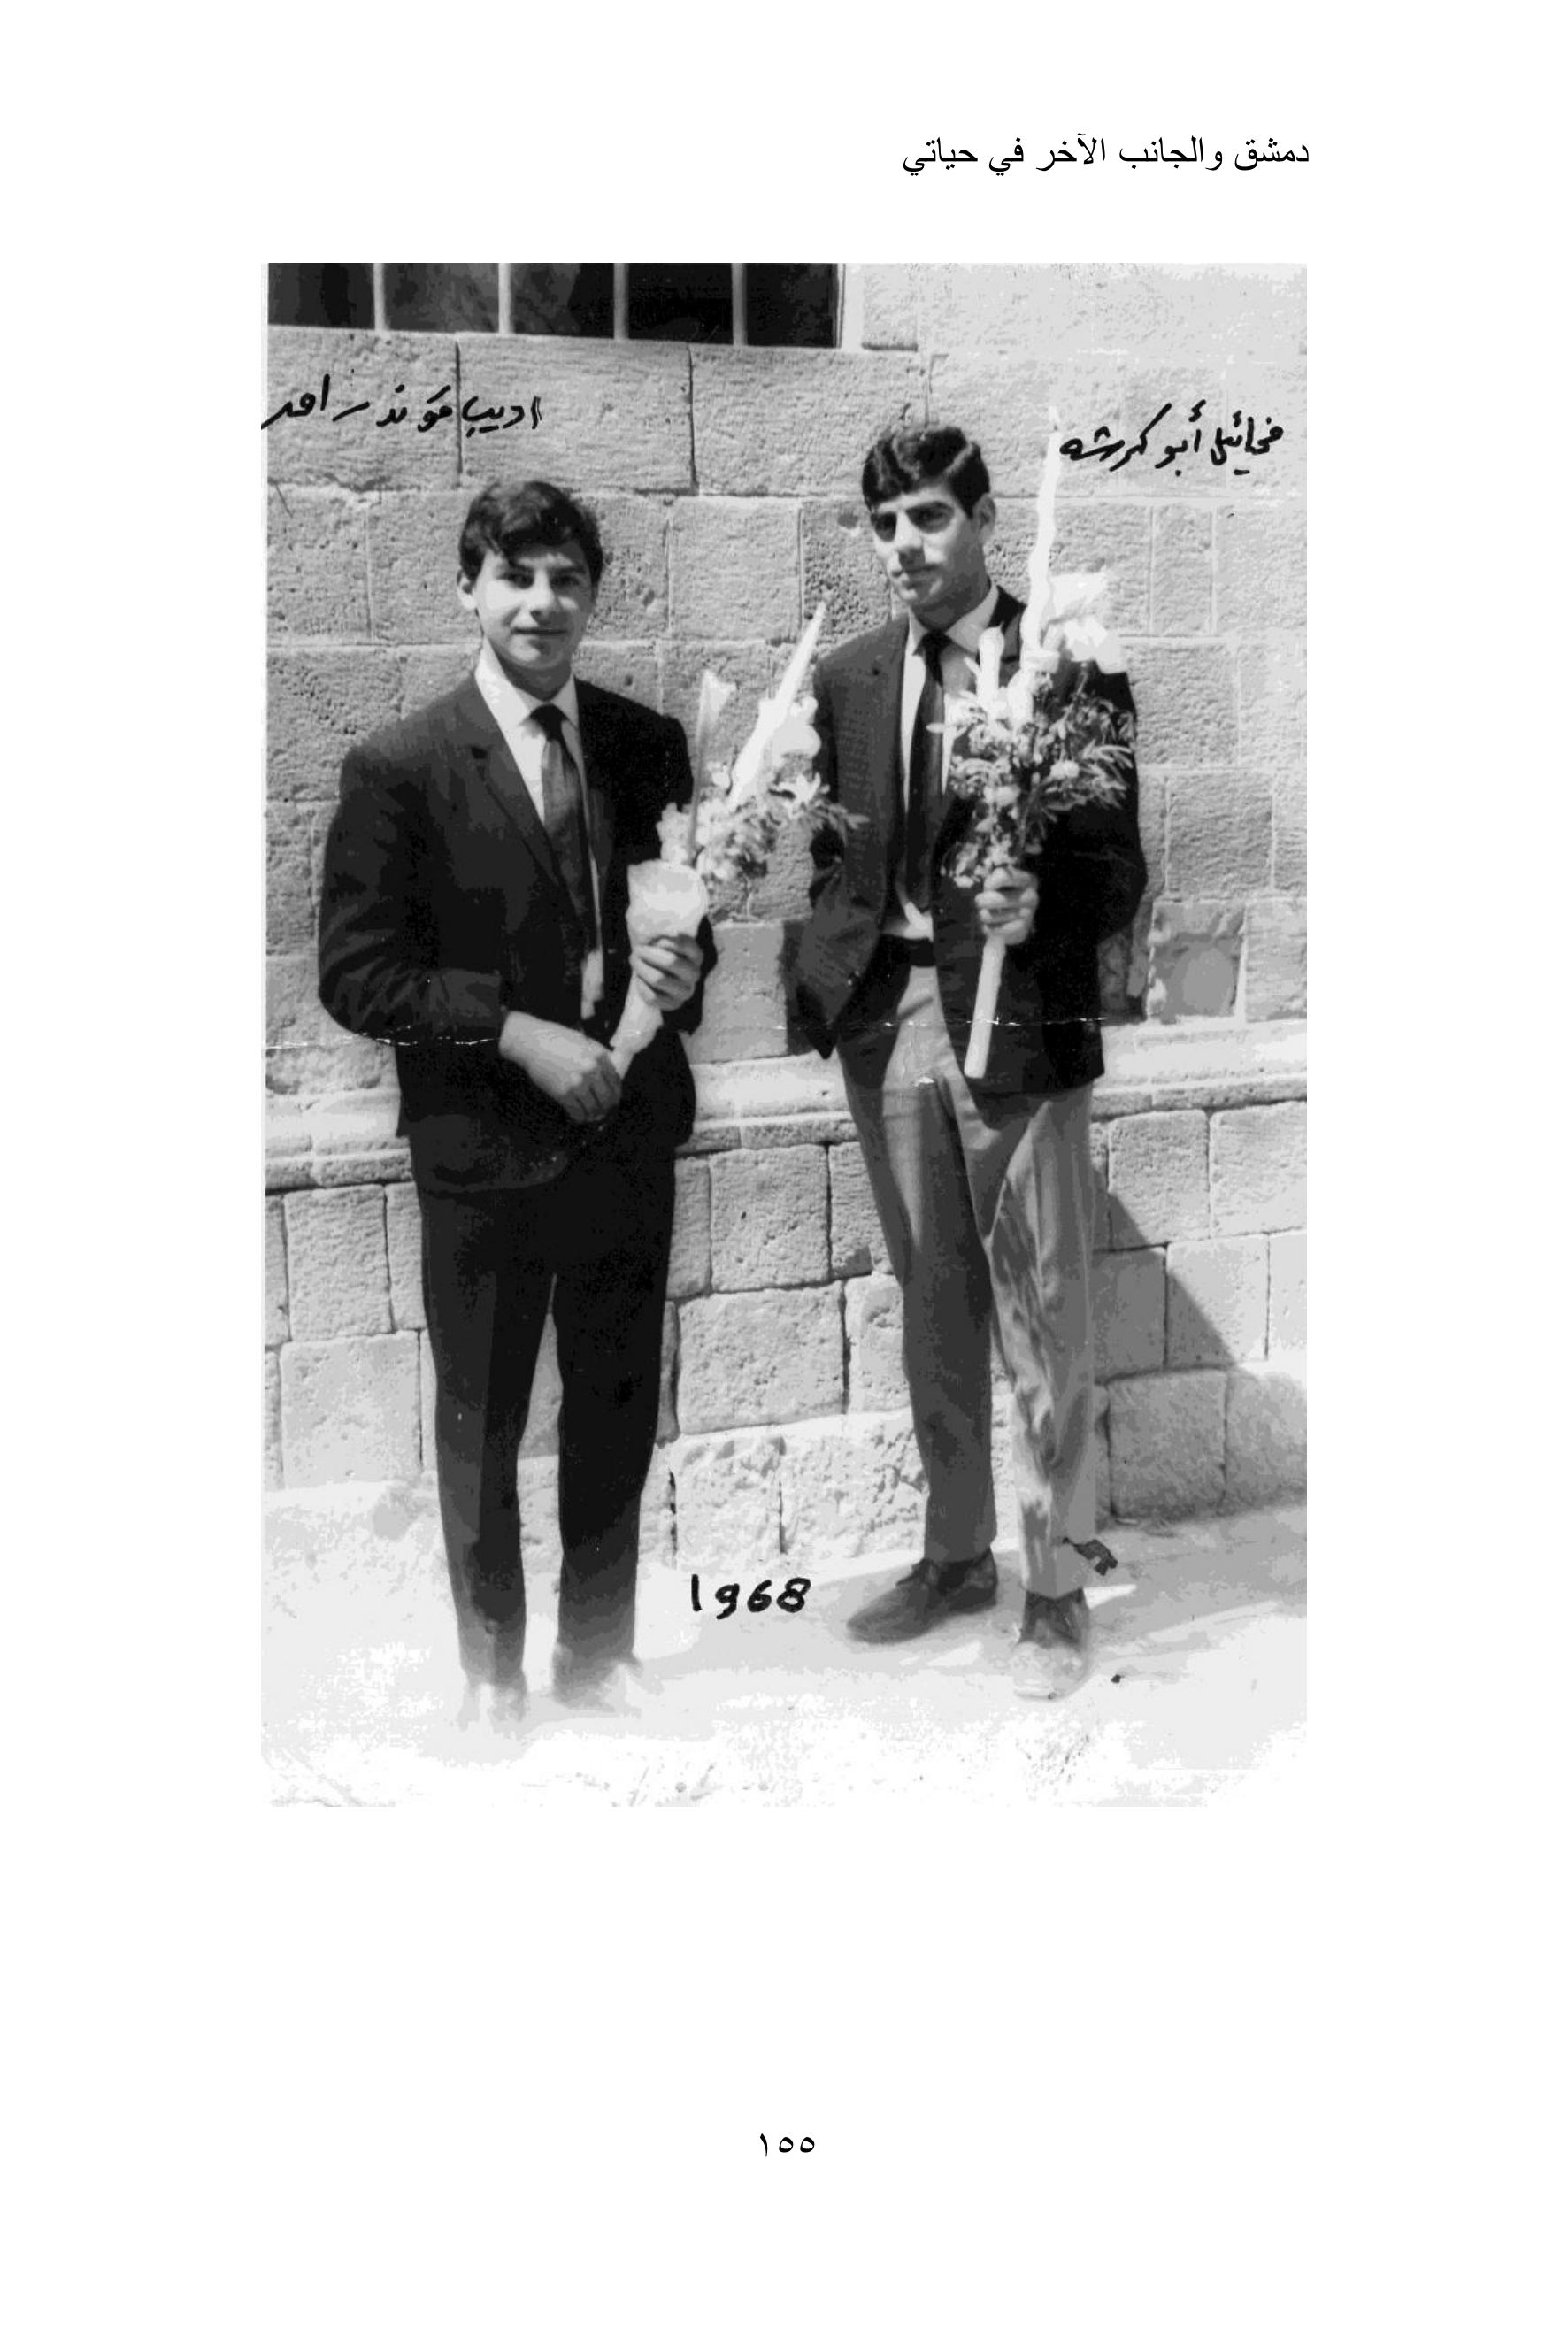 دمشق والجانب الآخر في حياتي
مخائيل أبو كرشه
اديب
1968
١٥٥